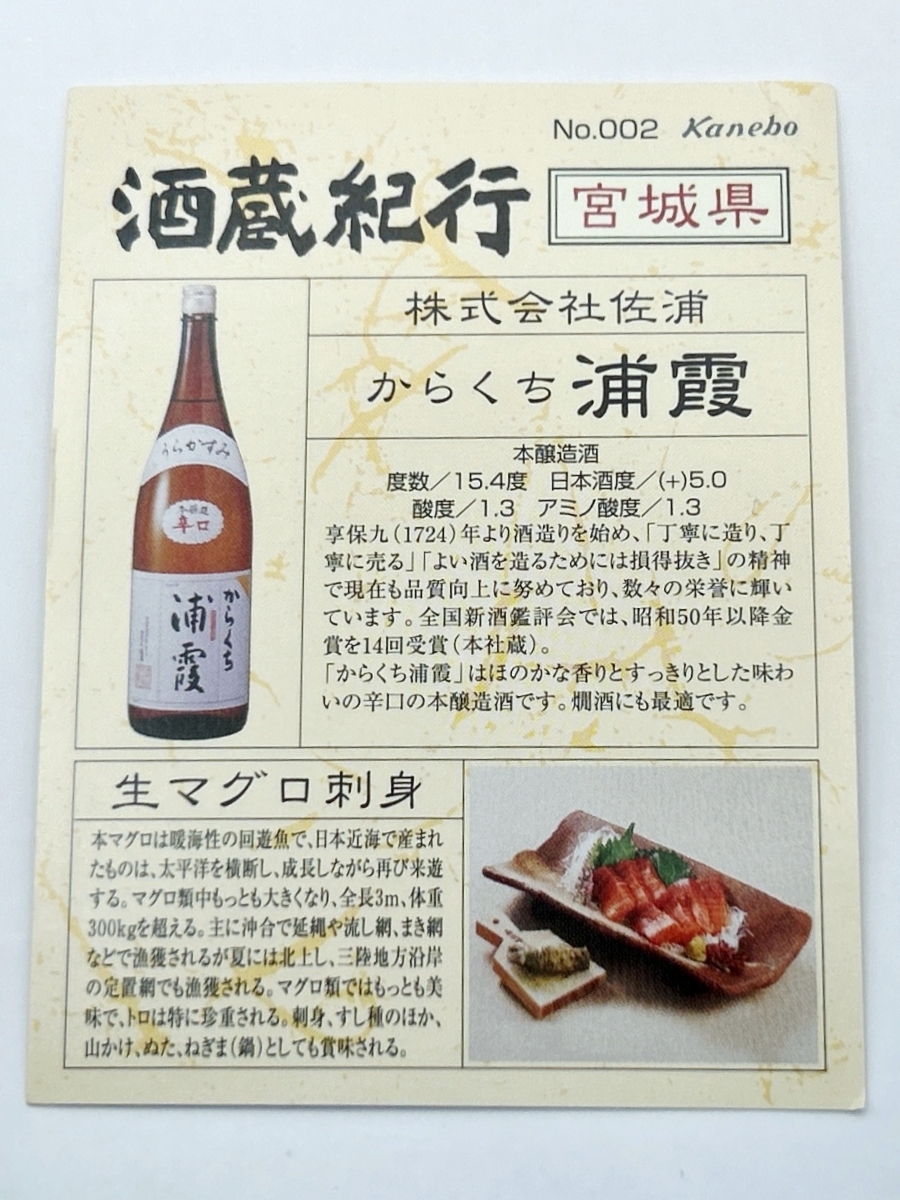 No.002 Kanebo
酒蔵紀行 宮城県
株式会社佐浦
からくち 浦霞
本醸造酒
度数／15.4度　日本酒度／(+)5.0
酸度／1.3　アミノ酸度／1.3
享保九（1724）年より酒造りを始め、「丁寧に造り、丁
寧に売る」「よい酒を造るためには損得抜き」の精神
で現在も品質向上に努めており、数々の栄誉に輝い
ています。全国新酒鑑評会では、昭和50年以降金
賞を14回受賞（本社蔵）。
「からくち浦霞」はほのかな香りとすっきりとした味わ
いの辛口の本醸造酒です。燗酒にも最適です。
うらかすみ
本醸造
辛口
からくち
浦霞
生マグロ刺身
本マグロは暖海性の回遊魚で、日本近海で産まれ
たものは、太平洋を横断し、成長しながら再び来遊
する。マグロ類中もっとも大きくなり、全長3m、体重
300kgを超える。主に沖合で延縄や流し網、まき網
などで漁獲されるが夏には北上し、三陸地方沿岸
の定置網でも漁獲される。マグロ類ではもっとも美
味で、トロは特に珍重される。刺身、すし種のほか、
山かけ、ぬた、ねぎま（鍋）としても賞味される。